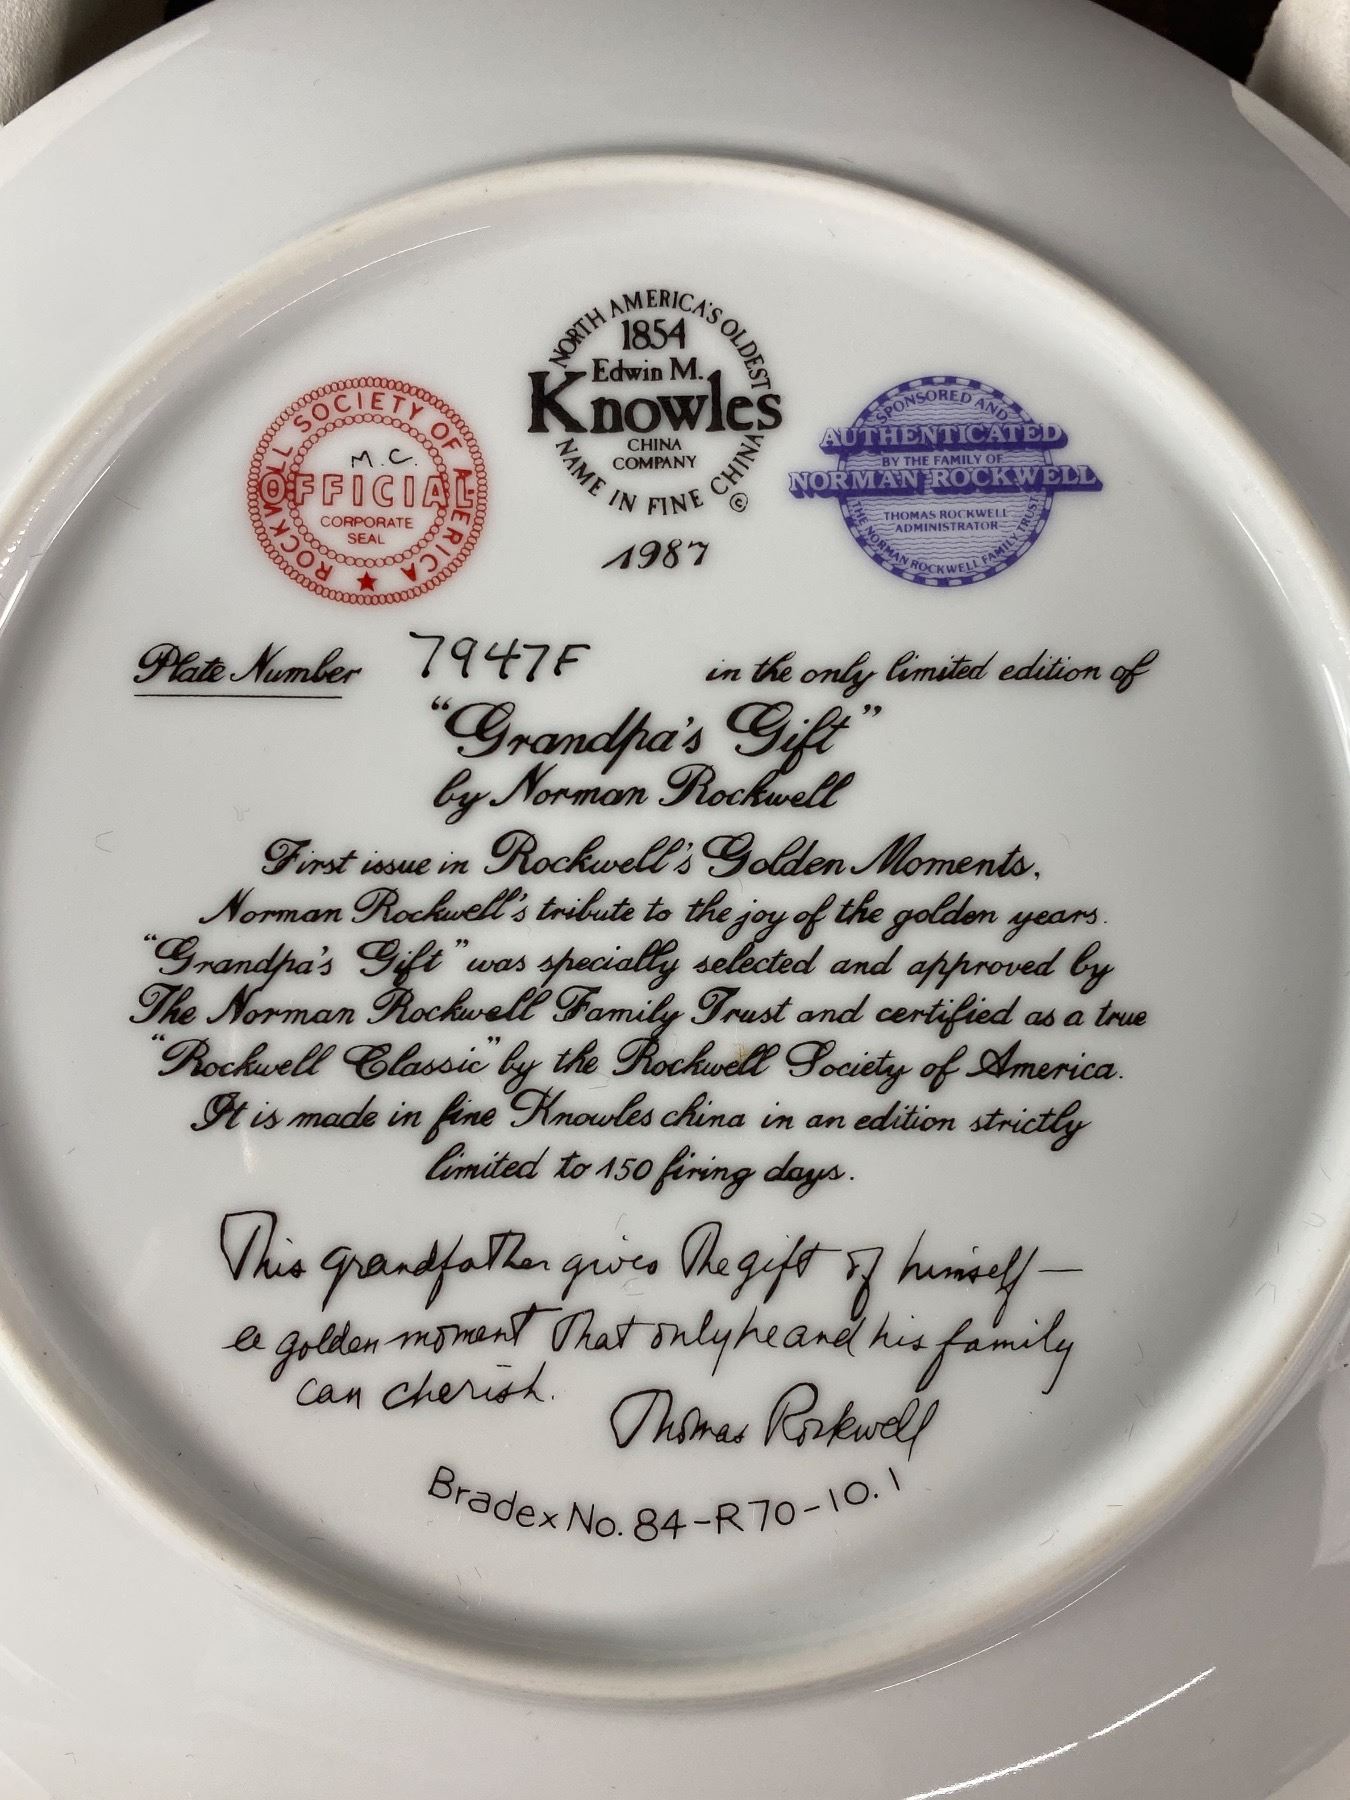 NORTH AMERICA'S OLDEST
1854
Edwin M.
Knowles
CHINA
COMPANY
NAME IN FINE CHINA
©
1987
ROCKWELL SOCIETY OF AMERICA
M.C.
OFFICIAL
CORPORATE
SEAL
SPONSORED AND
AUTHENTICATED
BY THE FAMILY OF
NORMAN ROCKWELL
THOMAS ROCKWELL
ADMINISTRATOR
THE NORMAN ROCKWELL FAMILY TRUST
Plate Number 7947F in the only limited edition of
"Grandpa's Gift"
by Norman Rockwell
First issue in Rockwell's Golden Moments,
Norman Rockwell's tribute to the joy of the golden years.
"Grandpa's Gift" was specially selected and approved by
The Norman Rockwell Family Trust and certified as a true
"Rockwell Classic" by the Rockwell Society of America.
It is made in fine Knowles china in an edition strictly
limited to 150 firing days.
This grandfather gives the gift of himself—
a golden moment that only he and his family
can cherish.
Thomas Rockwell
Bradex No. 84-R70-10.1